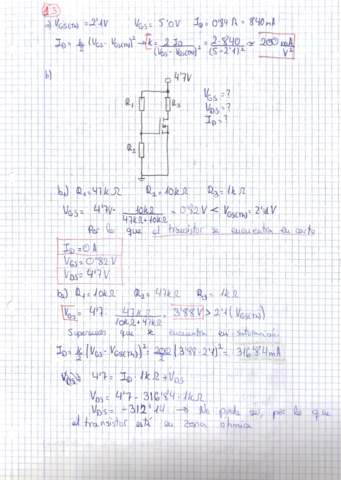 13
a) V_GS(TH) = 2'1V V_GS = 5'0V I_D = 0'84 A = 840 mA
I_D = k/2 (V_GS - V_GS(TH))² → k = 2·I_D/(V_GS - V_GS(TH))² = 2·840/(5-2'1)² ≈ 200 mA/V²
b)
4'7V
R1
R3
R2
V_GS = ?
V_DS = ?
I_D = ?
b1) R1 = 47kΩ R2 = 10kΩ R3 = 1kΩ
V_GS = 4'7V · 10kΩ/(47kΩ+10kΩ) = 0'82V < V_GS(TH) = 2'1V
Por lo que el transistor se encuentra en corte
I_D = 0 A
V_GS = 0'82V
V_DS = 4'7V
b2) R1 = 10kΩ R2 = 47kΩ R3 = 1kΩ
= 4'7 · 47kΩ/(10kΩ+47kΩ) = 3'88V > 2'1 (V_GS(TH))
Suponemos que se encuentra en saturación:
I_D = k/2 (V_GS - V_GS(TH))² = 200/2 (3'88-2'1)² = 316'84 mA
4'7 = I_D · 1kΩ + V_DS
V_DS = 4'7 - 316'84 · 1kΩ
V_DS = -312'14 → No puede ser, por lo que
el transistor está en zona óhmica